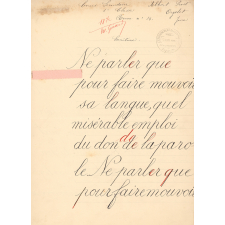 Ne parler que
pour faire mouvoir
sa langue, quel
misérable emploi
du don de la paro
le. Ne parler que
pour faire mouvoir